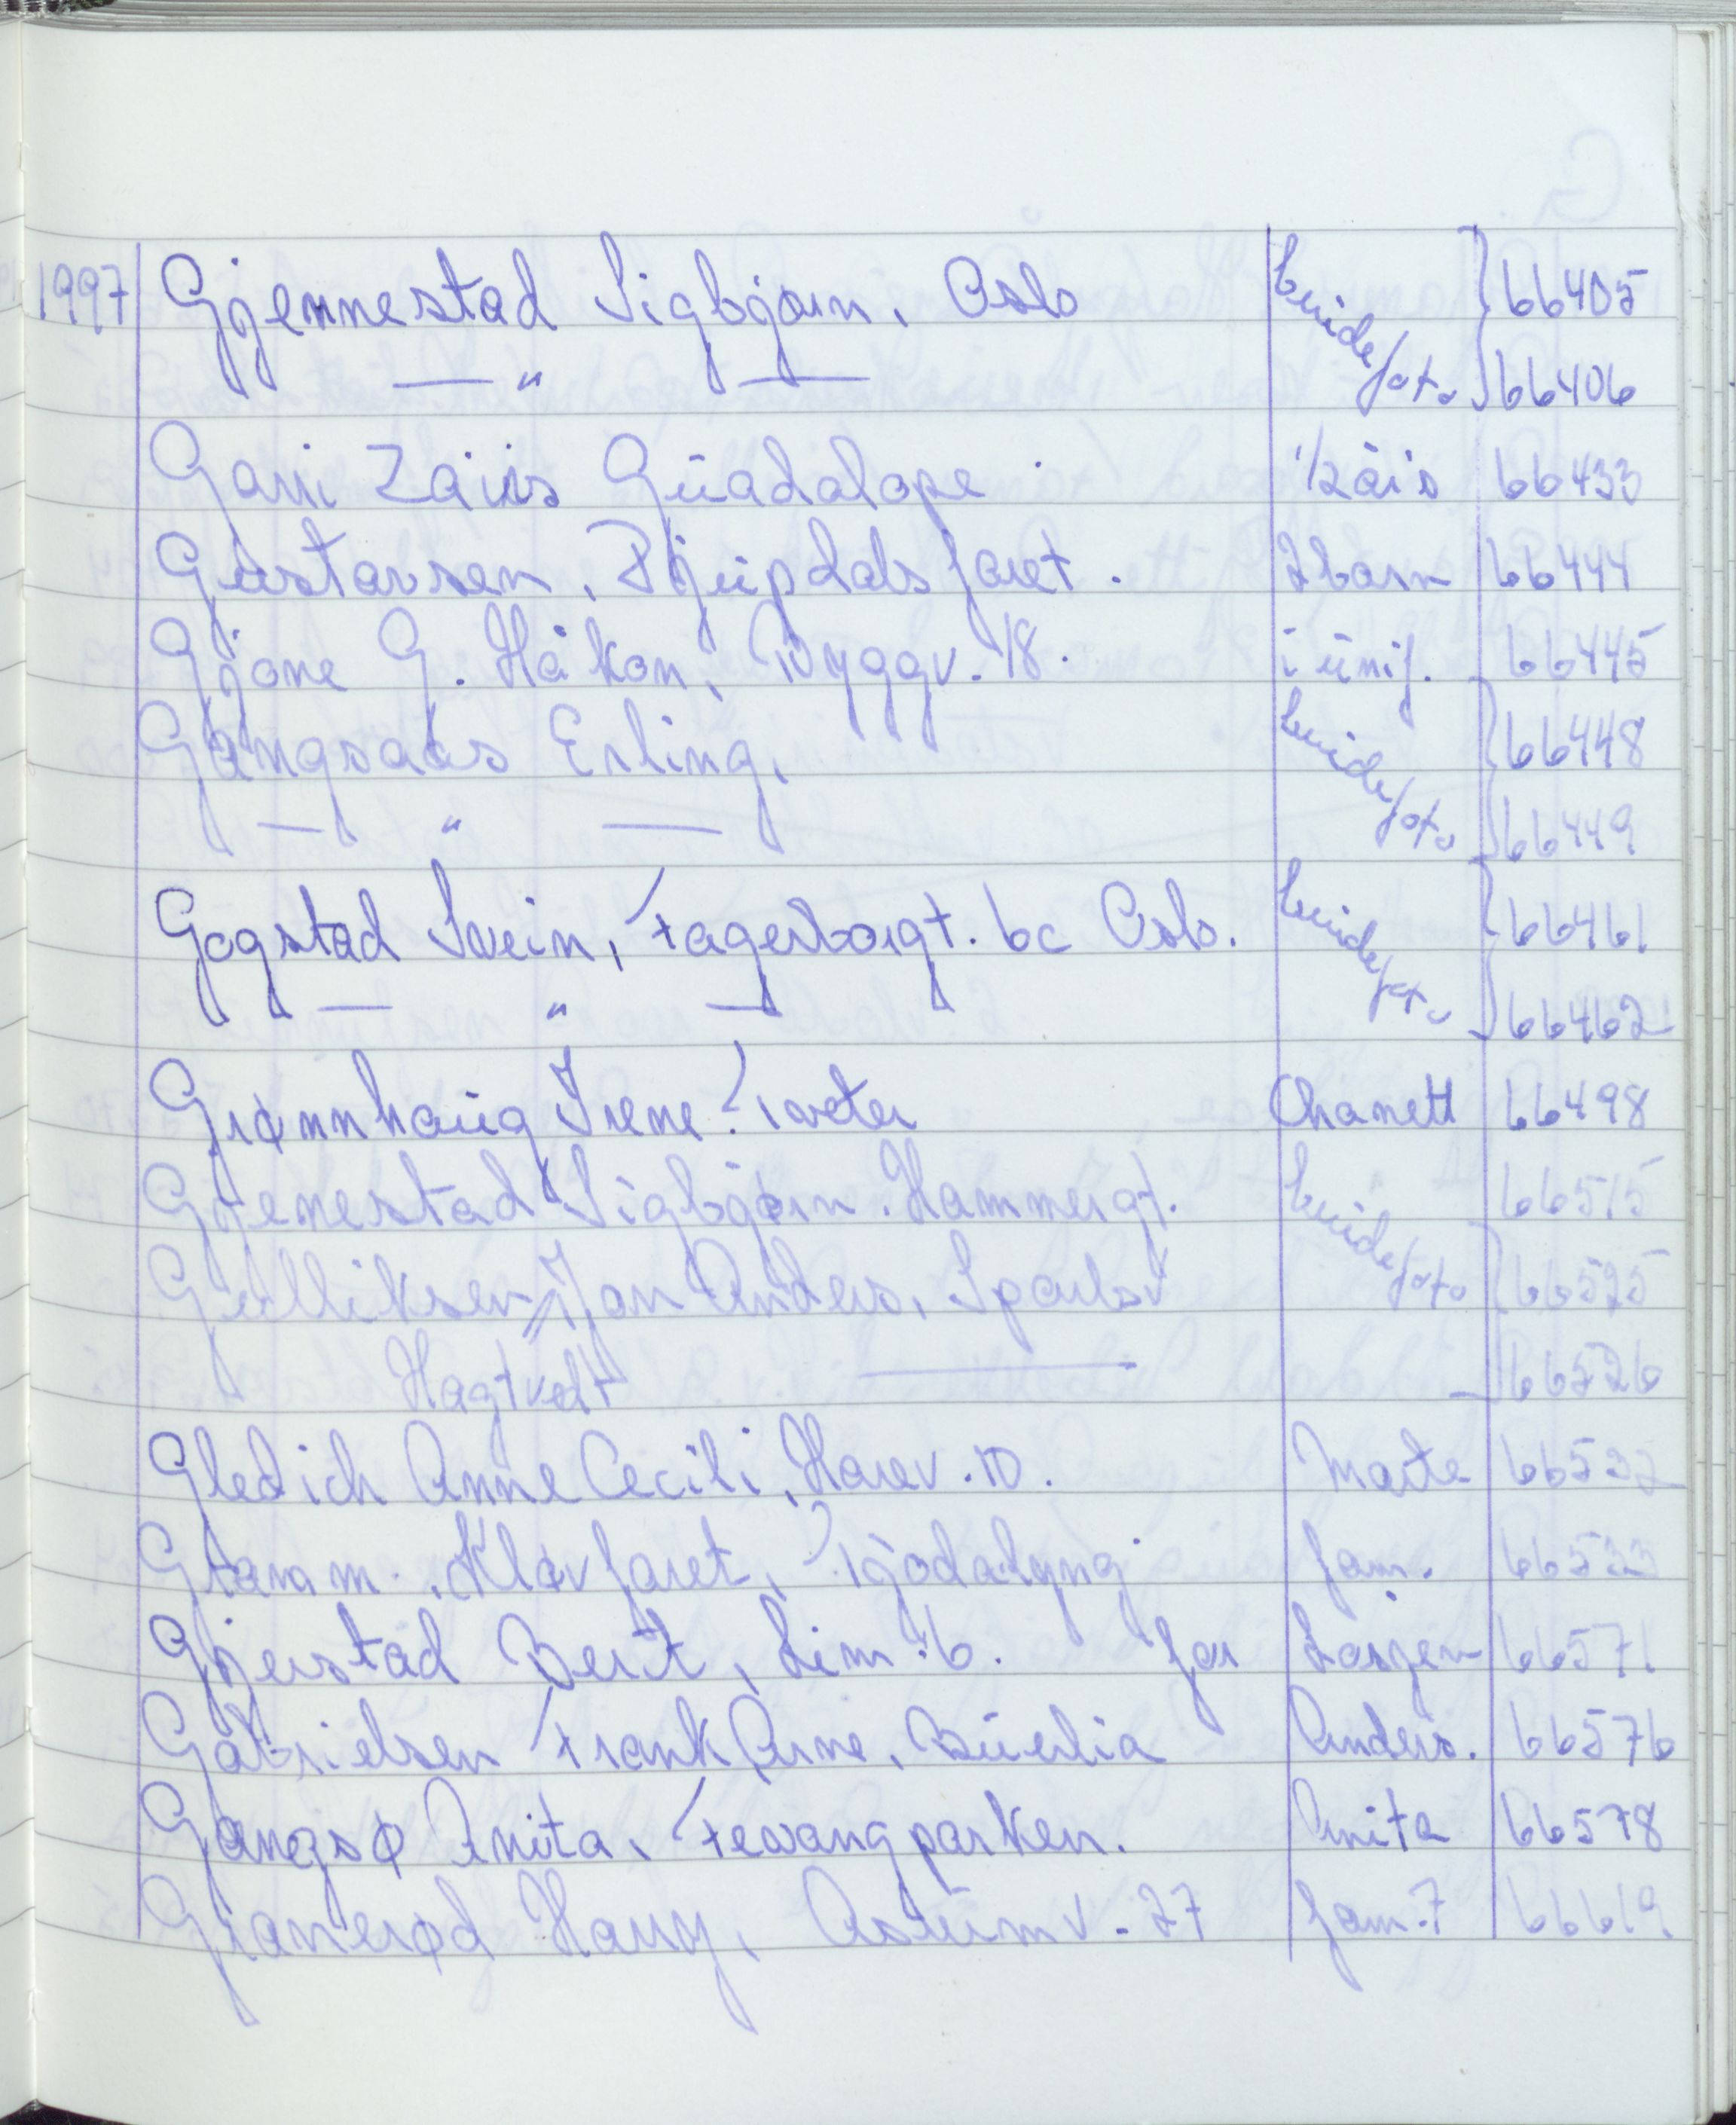 1997 Gjennestad Sigbjørn, Oslo brudefoto 66405
— " — 66406
Garri Zaiis Guadalope. 1/2 åis 66433
Gustavsen, Djupdalsfaret. 2barn 66444
Gjone G. Håkon, Byggv. 18. i unif. 66445
Gangsaas Erling, brudefoto 66448
— " — 66449
Gogstad Svein, Fagerborgt. 6c Oslo. brudefoto 66461
— " — 66462
Grønnhaug Irene Tveter Chanett 66498
Gjenestad Sigbjørn. Hammergt. brude 66515
Gulliksen Jan Anders, Sparbsv foto 66525
Hagtvedt — 66526
Gledich Anne Cecili, Harev. 10. Marte 66532
Gramm. Kløvfaret, Tjodalyng fam. 66533
Gjerstad Berit, Lim. 6. for Lorgen 66571
Gabrielsen Frank Arne, Buerlia Anders. 66576
Gangsø Anita, Fevangparken. Anita 66578
Granerød Harry, Åsrumv. 27 fam. 7 66619